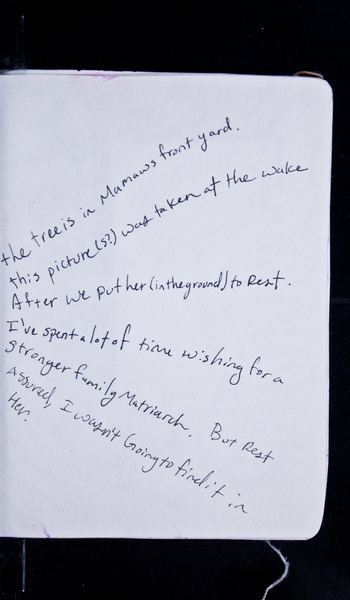 the tree is in Mamaws front yard.
this picture(s?) was taken at the wake
After we put her (in the ground) to Rest.
I've spent a lot of time wishing for a
stronger family Matriarch. But Rest
Assured, I wasn't Going to find it in
Her.